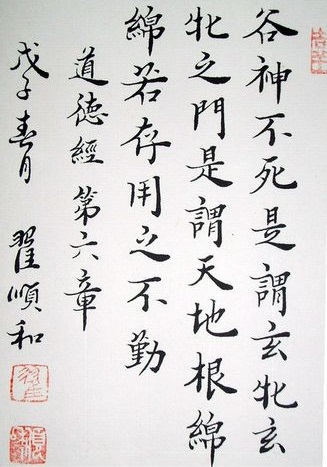 谷神不死是謂玄牝玄
牝之門是謂天地根綿
綿若存用之不勤
道德經第六章
戊子春月 翟順和